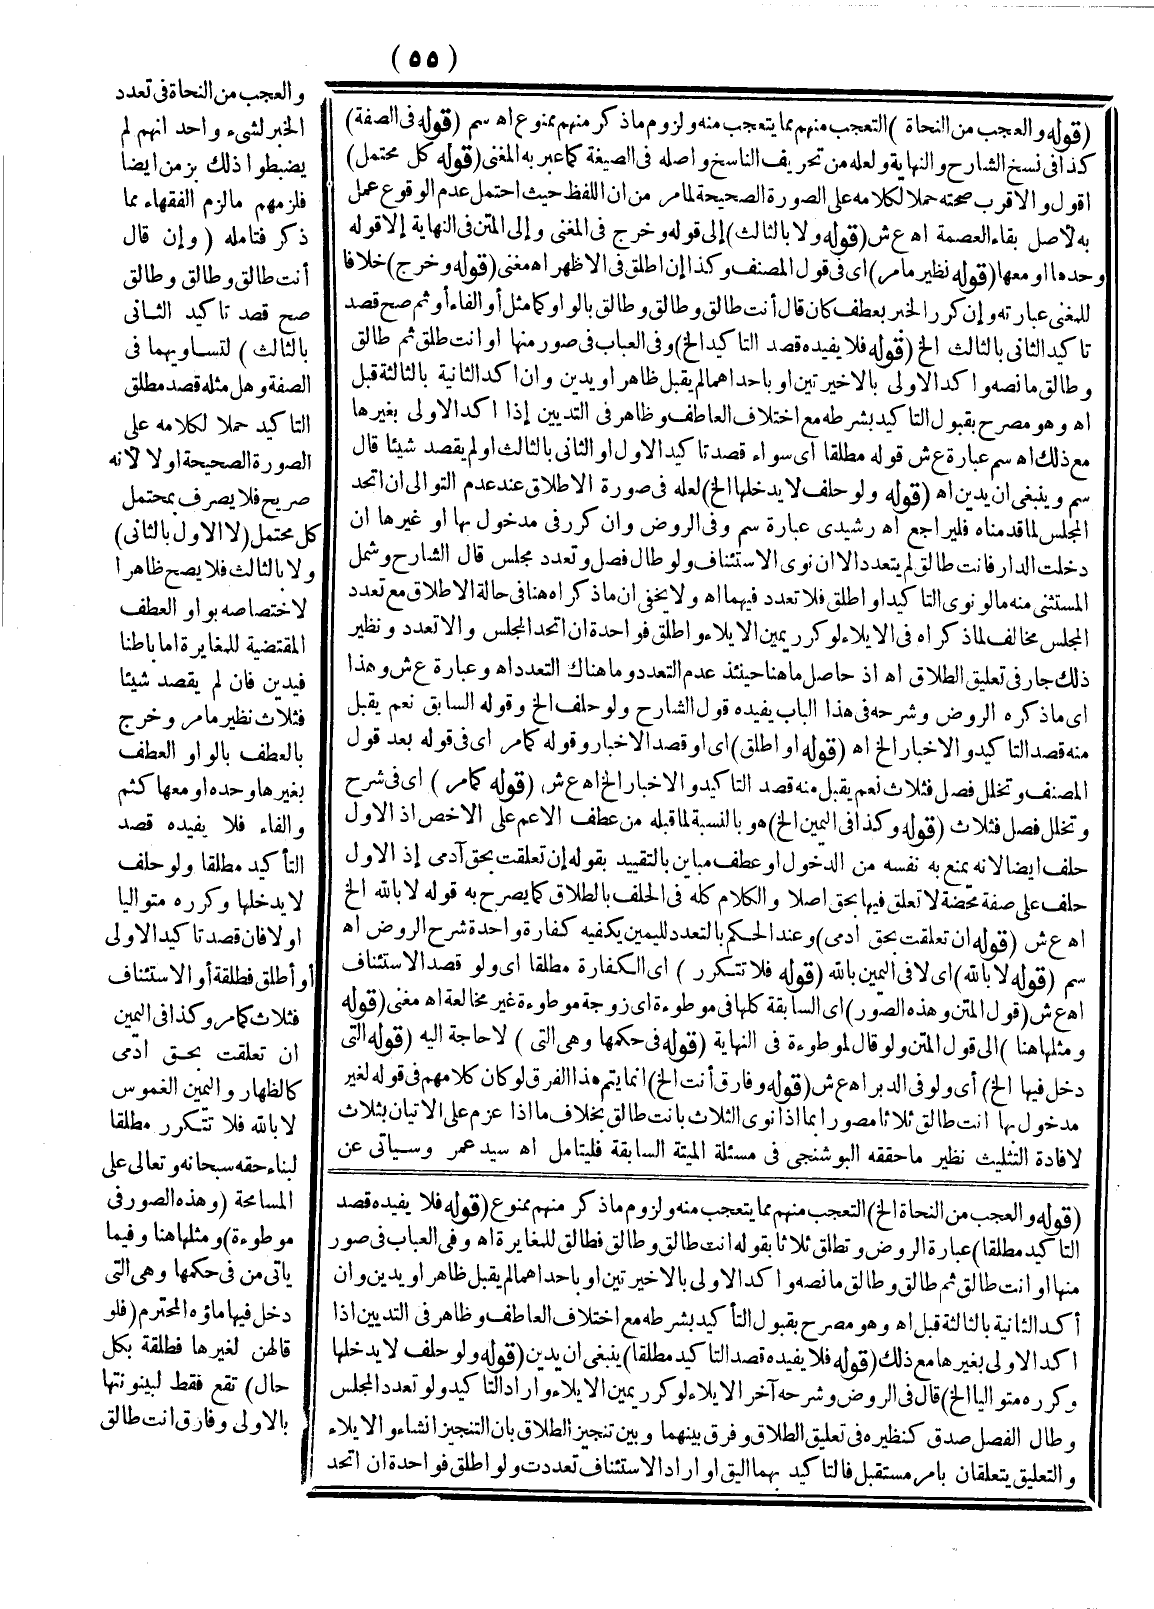 (٥٥)
(قوله والعجب من النحاة) التعجب منهم مما يتعجب منه ولزوم ماذكر منهم ممنوع اه سم (قوله فى الصفة)
كذا فى نسخ الشارح والنهاية ولعله من تحريف الناسخ واصله فى الصيغة كما عبر به المغنى (قوله كل محتمل)
اقول والاقرب صحته حملا لكلامه على الصورة الصحيحة لمامر من ان اللفظ حيث احتمل عدم الوقوع عمل
به لأصل بقاء العصمة اه ع ش (قوله ولا بالثالث) إلى قوله وخرج فى المغنى وإلى المتن فى النهاية إلا قوله
وحدها او معها (قوله نظير مامر) اى فى قول المصنف وكذا إن اطلق فى الاظهر اه مغنى (قوله وخرج) خلافا
للمغنى عبارته وإن كرر الخبر بعطف كان قال أنت طالق وطالق وطالق بالواو كما مثل أو الفاء أو ثم صح قصد
تاكيد الثانى بالثالث الخ (قوله فلا يفيده قصد التاكيد الخ) وفى العباب فى صور منها او انت طلق ثم طالق
وطالق مانصه واكد الاولى بالاخيرتين او باحداهما لم يقبل ظاهرا ويدين وان اكد الثانية بالثالثة قبل
اه وهو مصرح بقبول التاكيد بشرطه مع اختلاف العاطف وظاهر فى التديين إذا اكد الاولى بغيرها
مع ذلك اه سم عبارة ع ش قوله مطلقا اى سواء قصد تاكيد الاول او الثانى بالثالث او لم يقصد شيئا قال
سم وينبغى ان يدين اه (قوله ولو حلف لا يدخلها الخ) لعله فى صورة الاطلاق عند عدم التوالى ان اتحد
المجلس لما قدمناه فليراجع اه رشيدى عبارة سم وفى الروض وان كرر فى مدخول بها او غيرها ان
دخلت الدار فانت طالق لم يتعدد الا ان نوى الاستئناف ولو طال فصل وتعدد مجلس قال الشارح وشمل
المستثنى منه مالو نوى التاكيد او اطلق فلا تعدد فيهما اه ولا يخفى ان ماذكراه هنا فى حالة الاطلاق مع تعدد
المجلس مخالف لماذكراه فى الايلاء لو كرر يمين الايلاء واطلق فواحدة ان اتحد المجلس والا تعدد ونظير
ذلك جار فى تعليق الطلاق اه اذ حاصل ماهنا حينئذ عدم التعدد وما هناك التعدد اه وعبارة ع ش وهذا
اى ماذكره الروض وشرحه فى هذا الباب يفيده قول الشارح ولو حلف الخ وقوله السابق نعم يقبل
منه قصد التاكيد والاخبار الخ اه (قوله او اطلق) اى او قصد الاخبار وقوله كما مر اى فى قوله بعد قول
المصنف وتخلل فصل فثلاث نعم يقبل منه قصد التاكيد والاخبار الخ اه ع ش (قوله كما مر) اى فى شرح
وتخلل فصل فثلاث (قوله وكذا فى اليمين الخ) هو بالنسبة لما قبله من عطف الاعم على الاخص اذ الاول
حلف ايضا لانه يمنع به نفسه من الدخول او عطف مباين بالتقييد بقوله إن تعلقت بحق آدمى إذ الاول
حلف على صفة محضة لا تعلق فيها بحق اصلا والكلام كله فى الحلف بالطلاق كما يصرح به قوله لا بالله الخ
اه ع ش (قوله ان تعلقت بحق ادمى) وعند الحكم بالتعدد لليمين يكفيه كفارة واحدة شرح الروض اه
سم (قوله لا بالله) اى لا فى اليمين بالله (قوله فلا تتكرر) اى الكفارة مطلقا اى ولو قصد الاستئناف
اه ع ش (قول المتن وهذه الصور) اى السابقة كلها فى موطوءة اى زوجة موطوءة غير مخالعة اه مغنى (قوله
ومثلها هنا) الى قول المتن ولو قال لموطوءة فى النهاية (قوله فى حكمها وهى التى) لا حاجة اليه (قوله التى
دخل فيها الخ) أى ولو فى الدبر اه ع ش (قوله وفارق أنت الخ) انما يتم هذا الفرق لو كان كلامهم فى قوله لغير
مدخول بها انت طالق ثلاثا مصورا بما اذا نوى الثلاث بانت طالق بخلاف ما اذا عزم على الاتيان بثلاث
لافادة التثليث نظير ماحققه البوشنجى فى مسئلة الميتة السابقة فليتامل اه سيد عمر وسياتى عن
(قوله والعجب من النحاة الخ) التعجب منهم مما يتعجب منه ولزوم ماذكر منهم ممنوع (قوله فلا يفيده قصد
التاكيد مطلقا) عبارة الروض وتطلق ثلاثا بقوله انت طالق وطالق فطالق للمغايرة اه وفى العباب فى صور
منها او انت طالق ثم طالق وطالق مانصه واكد الاولى بالاخيرتين او باحداهما لم يقبل ظاهرا ويدين وان
أكد الثانية بالثالثة قبل اه وهو مصرح بقبول التأكيد بشرطه مع اختلاف العاطف وظاهر فى التديين اذا
اكد الاولى بغيرها مع ذلك (قوله فلا يفيده قصد التاكيد مطلقا) ينبغى ان يدين (قوله ولو حلف لا يدخلها
وكرره متواليا الخ) قال فى الروض وشرحه آخر الايلاء لو كرر يمين الايلاء واراد التاكيد ولو تعدد المجلس
وطال الفصل صدق كنظيره فى تعليق الطلاق وفرق بينهما وبين تنجيز الطلاق بان التنجيز انشاء والايلاء
والتعليق يتعلقان بامر مستقبل فالتاكيد بهما اليق او اراد الاستئناف تعددت ولو اطلق فواحدة ان اتحد
والعجب من النحاة فى تعدد
الخبر لشىء واحد انهم لم
يضبطوا ذلك بزمن ايضا
فلزمهم مالزم الفقهاء مما
ذكر فتامله (وإن قال
أنت طالق وطالق وطالق
صح قصد تاكيد الثانى
بالثالث) لتساويهما فى
الصفة وهل مثله قصد مطلق
التاكيد حملا لكلامه على
الصورة الصحيحة او لا لأنه
صريح فلا يصرف بمحتمل
كل محتمل (لا الاول بالثانى)
ولا بالثالث فلا يصح ظاهرا
لاختصاصه بواو العطف
المقتضية للمغايرة اما باطنا
فيدين فان لم يقصد شيئا
فثلاث نظير مامر وخرج
بالعطف بالواو العطف
بغيرها وحده او معها كثم
والفاء فلا يفيده قصد
التأكيد مطلقا ولو حلف
لا يدخلها وكرره متواليا
او لا فان قصد تاكيد الاولى
أو أطلق فطلقة أو الاستئناف
فثلاث كما مر وكذا فى اليمين
ان تعلقت بحق ادّمى
كالظهار واليمين الغموس
لا بالله فلا تتكرر مطلقا
لبناء حقه سبحانه وتعالى على
المسامحة (وهذه الصور فى
موطوءة) ومثلها هنا وفيما
ياتى من فى حكمها وهى التى
دخل فيها ماؤه المحترم (فلو
قالهن لغيرها فطلقة بكل
حال) تقع فقط لبينونتها
بالاولى وفارق انت طالق